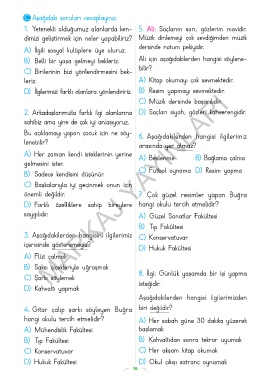 C Aşağıdaki soruları cevaplayınız.
1. Yetenekli olduğumuz alanlarda ken-
dimizi geliştirmek için neler yapabiliriz?
A) İlgili sosyal kulüplere üye oluruz.
B) Belli bir yaşa gelmeyi bekleriz.
C) Birilerinin bizi yönlendirmesini bek-
leriz.
D) İlgilerimizi farklı alanlara yönlendiririz.
2. Arkadaşlarımızla farklı ilgi alanlarına
sahibiz ama yine de çok iyi anlaşıyoruz.
Bu açıklamayı yapan çocuk için ne söy-
lenebilir?
A) Her zaman kendi isteklerinin yerine
gelmesini ister.
B) Sadece kendisini düşünür.
C) Başkalarıyla iyi geçinmek onun için
önemli değildir.
D) Farklı özelliklere sahip bireylere
saygılıdır.
3. Aşağıdakilerden hangisini ilgilerimiz
içerisinde gösteremeyiz?
A) Flüt çalmak
B) Saksı çiçekleriyle uğraşmak
C) Şarkı söylemek
D) Kahvaltı yapmak
4. Gitar çalıp şarkı söyleyen Buğra
hangi okulu tercih etmelidir?
A) Mühendislik Fakültesi
B) Tıp Fakültesi
C) Konservatuvar
D) Hukuk Fakültesi
5. Ali: Saçlarım sarı, gözlerim mavidir.
Müzik dinlemeyi çok sevdiğimden müzik
dersinde notum pekiyidir.
Ali için aşağıdakilerden hangisi söylene-
bilir?
A) Kitap okumayı çok sevmektedir.
B) Resim yapmayı sevmektedir.
C) Müzik dersinde başarılıdır.
D) Saçları siyah, gözleri kahverengidir.
6. Aşağıdakilerden hangisi ilgilerimiz
arasında yer almaz?
A) Beslenme B) Bağlama çalma
C) Futbol oynama D) Resim yapma
7. Çok güzel resimler yapan Buğra
hangi okulu tercih etmelidir?
A) Güzel Sanatlar Fakültesi
B) Tıp Fakültesi
C) Konservatuvar
D) Hukuk Fakültesi
8. İlgi: Günlük yaşamda bir işi yapma
isteğidir.
Aşağıdakilerden hangisi ilgilerimizden
biri değildir?
A) Her sabah güne 30 dakika yüzerek
başlamak
B) Kahvaltıdan sonra tekrar uyumak
C) Her akşam kitap okumak
D) Okul çıkışı satranç oynamak